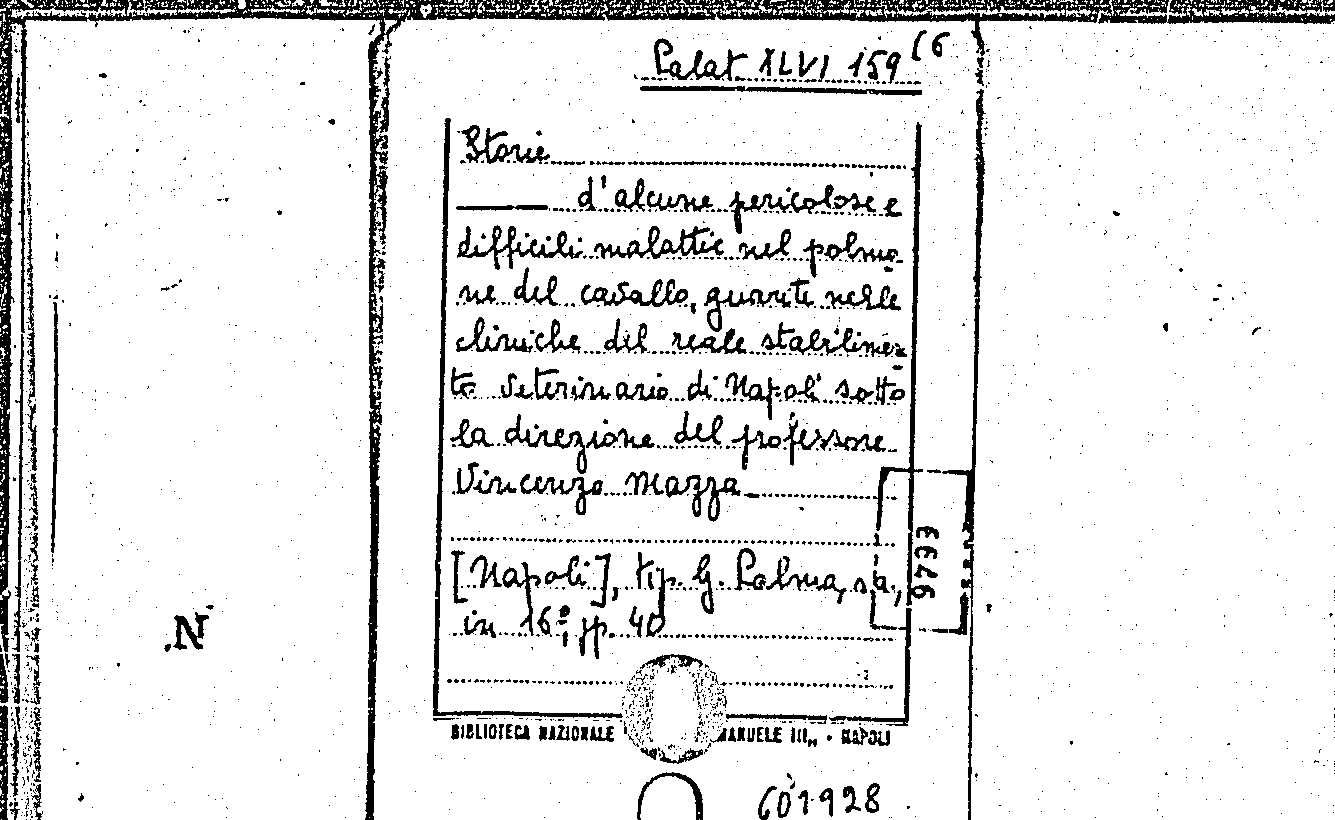 Palat XLVI 159 (6
Storie
d'alcune pericolose e
difficili malattie nel polmo
ne del cavallo, guarite nelle
cliniche del reale stabilimen
to veterinario di Napoli sotto
la direzione del professore
Vincenzo Mazza
[Napoli], tip. G. Palma, s.a.,
in 16º, pp. 40
BIBLIOTECA NAZIONALE MANUELE III„ - NAPOLI
601928
N.